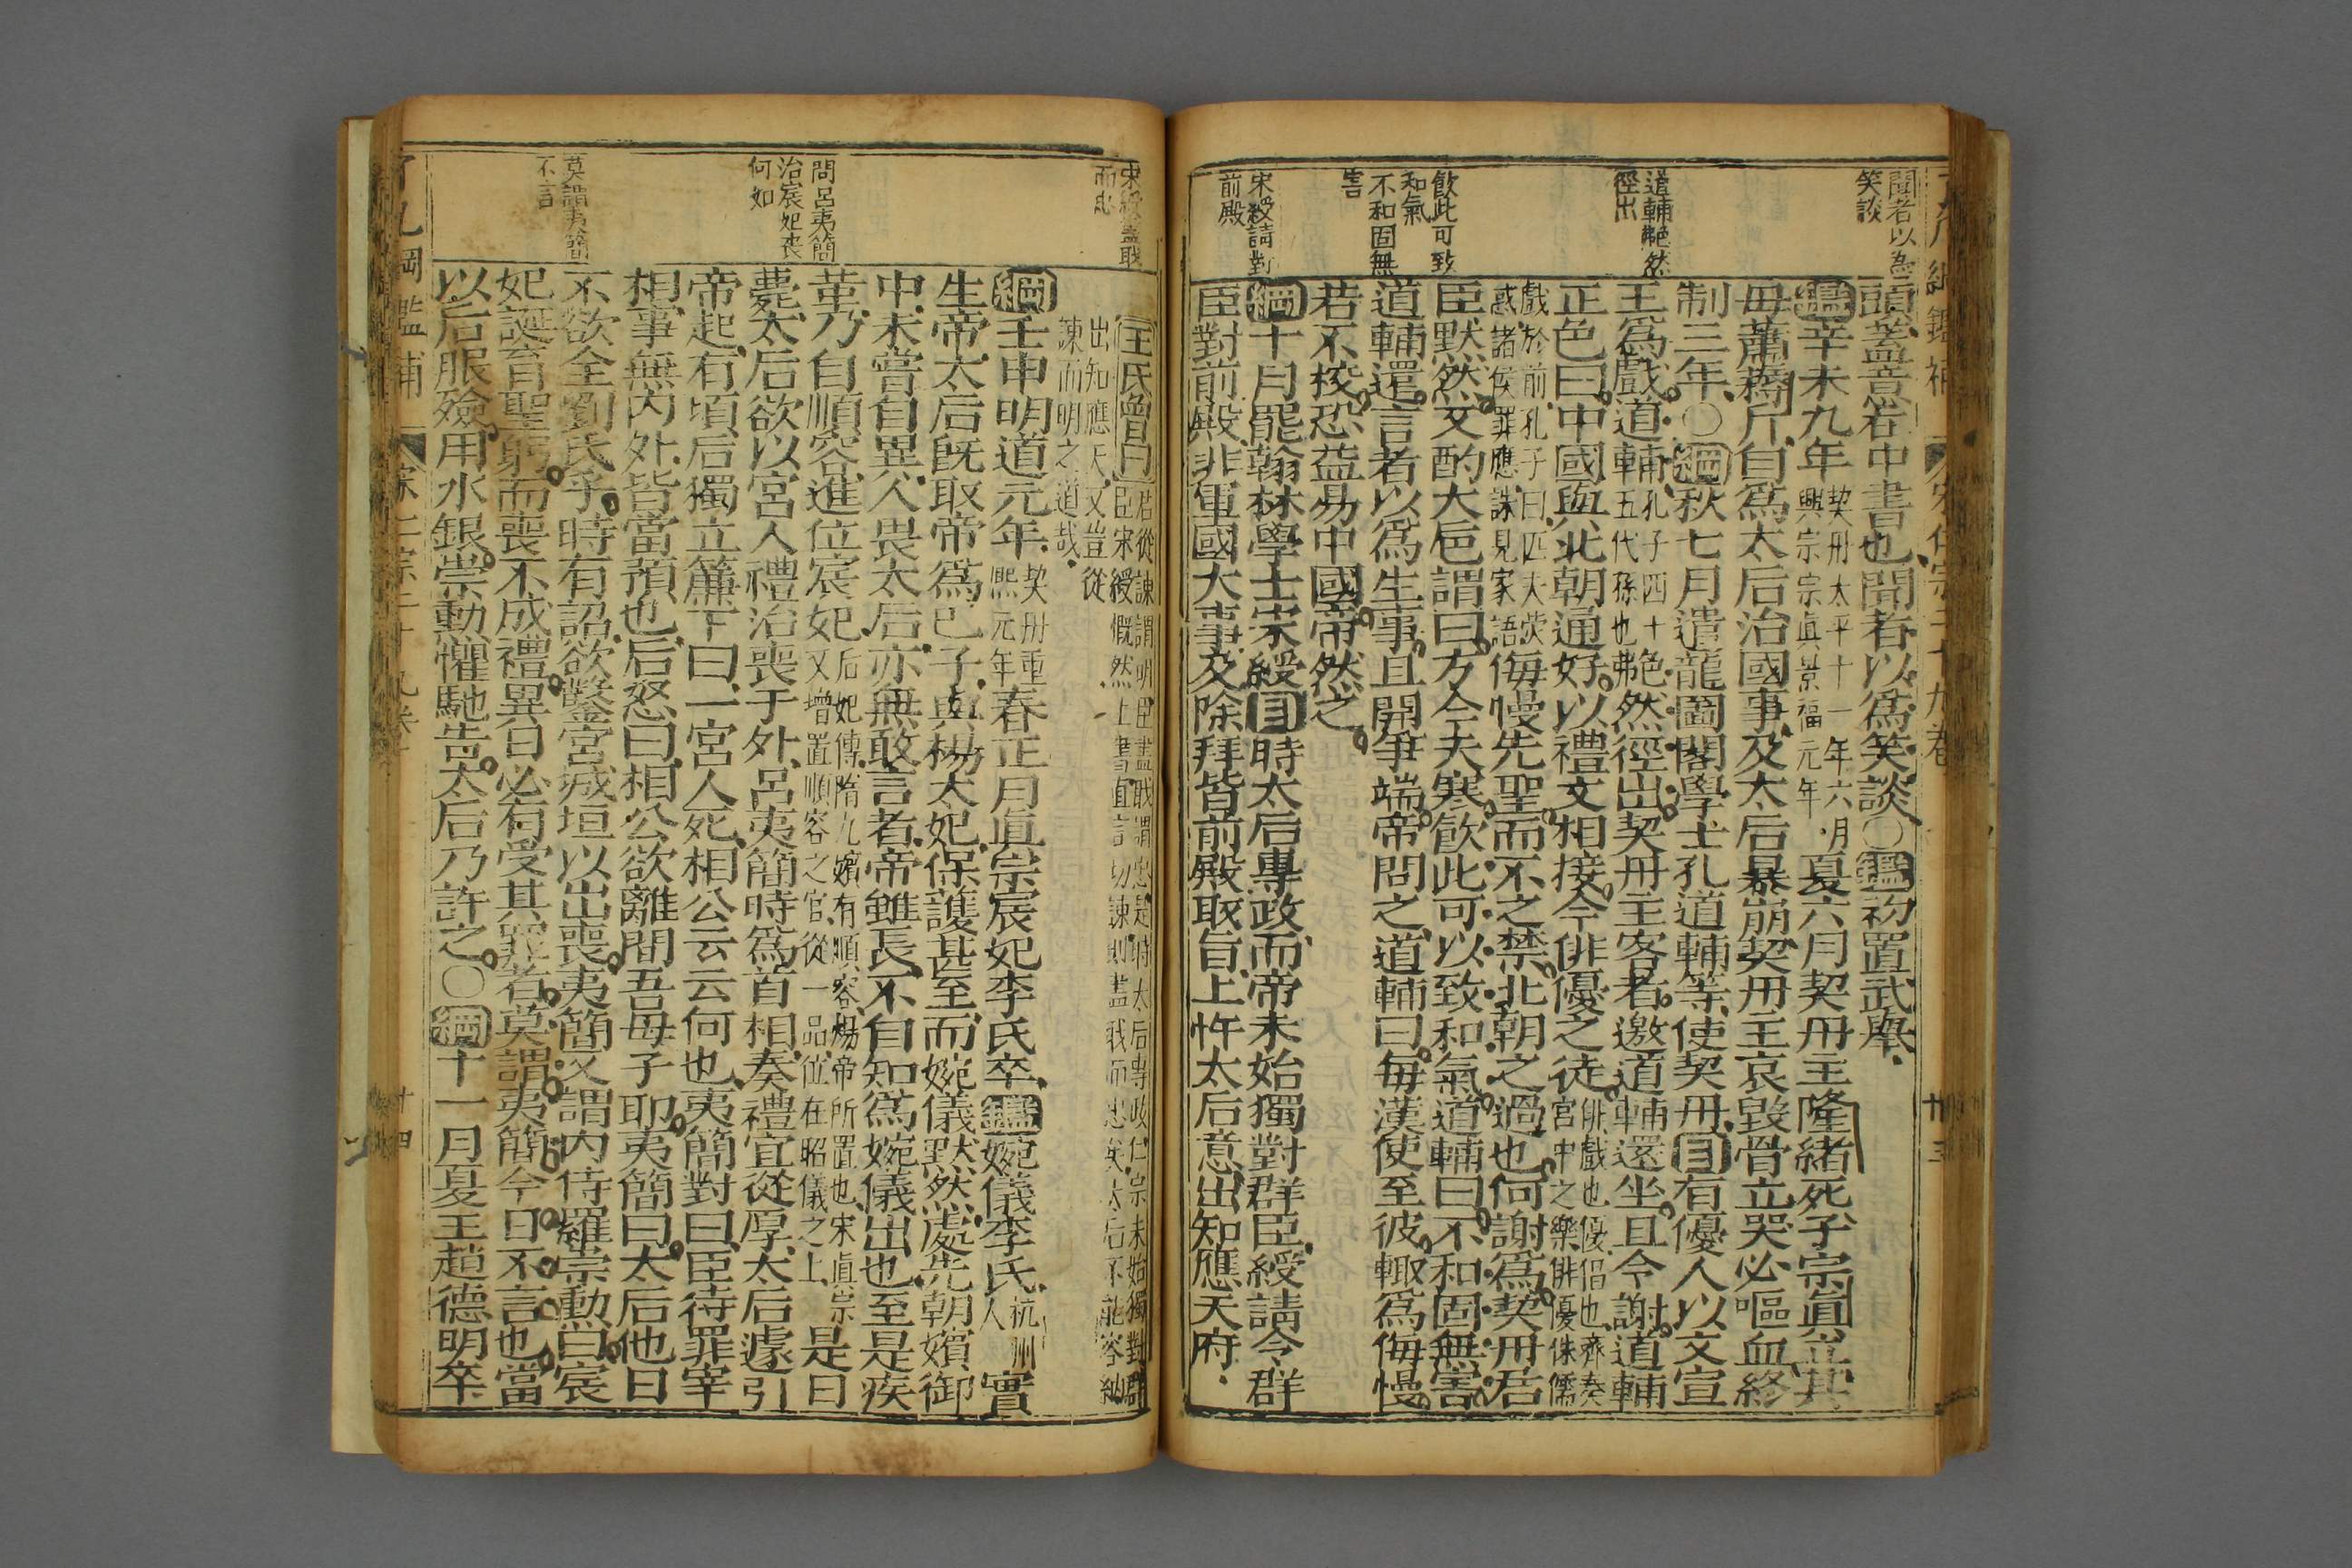 聞者以為
笑談
道輔艴然
徑出
飲此可致
和氣
不和固無
害
宋綬請對
前殿
頭蓋意在中書也聞者以爲笑談〇鑑初置武舉
鑑辛未九年契丹太平十一年六月興宗宗眞景福元年夏六月契丹主隆緖死子宗眞立其
母蕭耨斤自爲太后治國事及太后暴崩契丹主哀毀骨立哭必嘔血終
制三年〇綱秋七月遣龍圖閣學士孔道輔等使契丹目有優人以文宣
王爲戲道輔孔子四十五代孫也艴然徑出契丹主客者邀道輔還坐且令謝道輔
正色曰中國與北朝通好以禮文相接今俳優之徒俳戲也優倡也齊奏宮中之樂俳優侏儒
戲於前孔子曰匹夫熒惑諸侯罪應誅見家語侮慢先聖而不之禁北朝之過也何謝爲契丹君
臣默然又酌大巵謂曰方今天寒飮此可以致和氣道輔曰不和固無害
道輔還言者以爲生事且開爭端帝問之道輔曰每漢使至彼輙爲侮慢
若不校恐益易中國帝然之
綱十月罷翰林學士宋綬目時太后專政而帝未始獨對群臣綬請令群
臣對前殿非軍國大事及除拜皆前殿取旨上忤太后意出知應天府
宋綬盡戢
而忠
問呂夷簡
治宸妃喪
何如
莫謂夷簡
不言
王氏曾曰君從諫謂明臣盡戢謂忠是時太后專政仁宗未始獨對群
臣宋綬慨然上書直言切諫則盡戢而忠矣太后不能容納
出知應天又豈從
諫而明之道哉
綱壬申明道元年契丹重熙元年春正月眞宗宸妃李氏卒鑑婉儀李氏杭州人實
生帝太后旣取帝爲己子與楊太妃保護甚至而婉儀默然處先朝嬪御
中未嘗自異人畏太后亦無敢言者帝雖長不自知爲婉儀出也至是疾
革乃自順容進位宸妃后妃傳隋九嬪有順容楊帝所置也宋眞宗又增置順容之官從一品位在昭儀之上是日
薨太后欲以宮人禮治喪于外呂夷簡時爲首相奏禮宜從厚太后遽引
帝起有頃后獨立簾下曰一宮人死相公云云何也夷簡對曰臣待罪宰
相事無內外皆當預也后怒曰相公欲離間吾母子耶夷簡曰太后他日
不欲全劉氏乎時有詔欲鑿宮城垣以出喪夷簡又謂內侍羅崇勳曰宸
妃誕育聖躬而喪不成禮異日必有受其罪者莫謂夷簡今日不言也當
以后服殮用水銀崇勳懼馳告太后乃許之〇綱十一月夏王趙德明卒